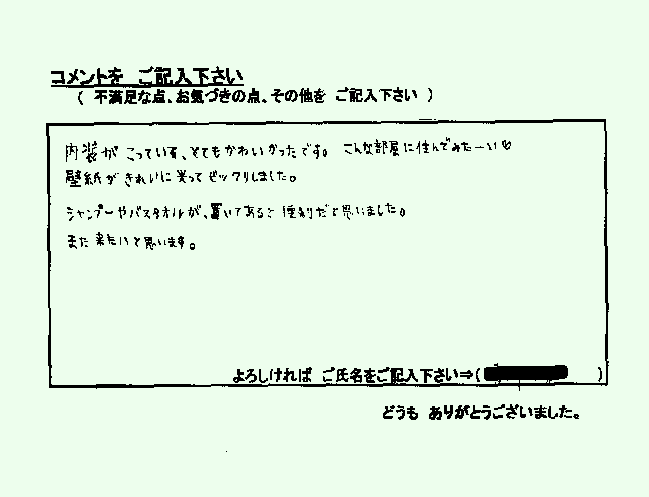 コメントを ご記入下さい
( 不満足な点、お気づきの点、その他を ご記入下さい )
内装が こっていて、とてもかわいかったです。 こんな部屋に住んでみたーい♡
壁紙が きれいに 貼ってビックリしました。
シャンプーやバスタオルが、置いてあると 便利だと思いました。
また 来たいと思います。
よろしければ ご氏名をご記入下さい⇒( )
どうも ありがとうございました。